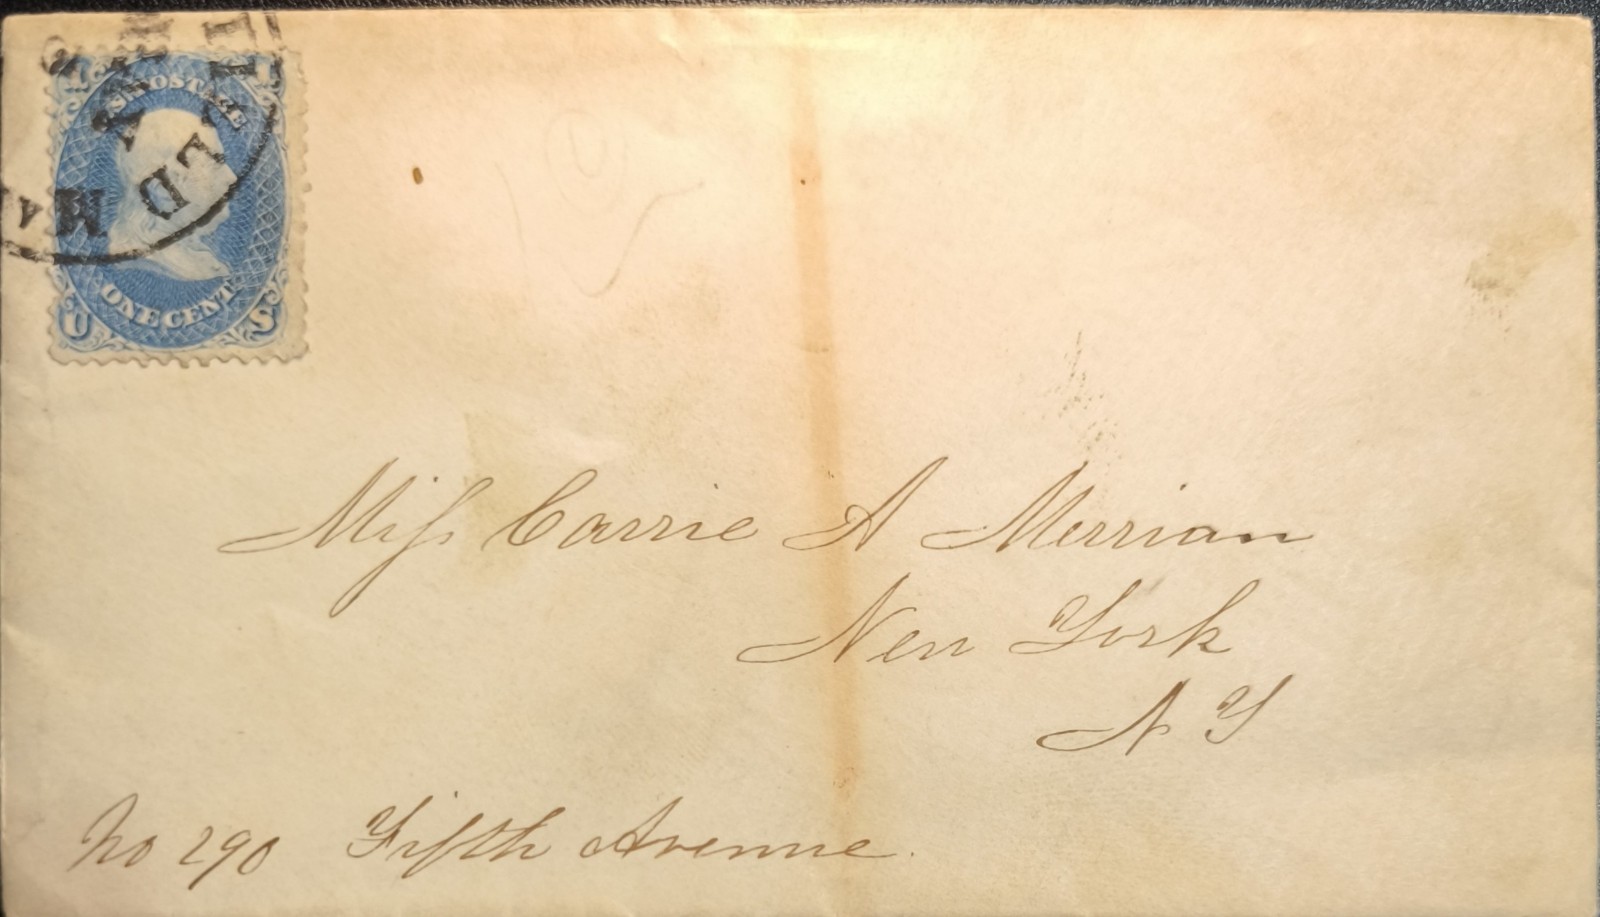 U.S. POSTAGE
ONE CENT.
U S
Miss Carrie A Merriam
New York
N Y
No 290 Fifth Avenue.